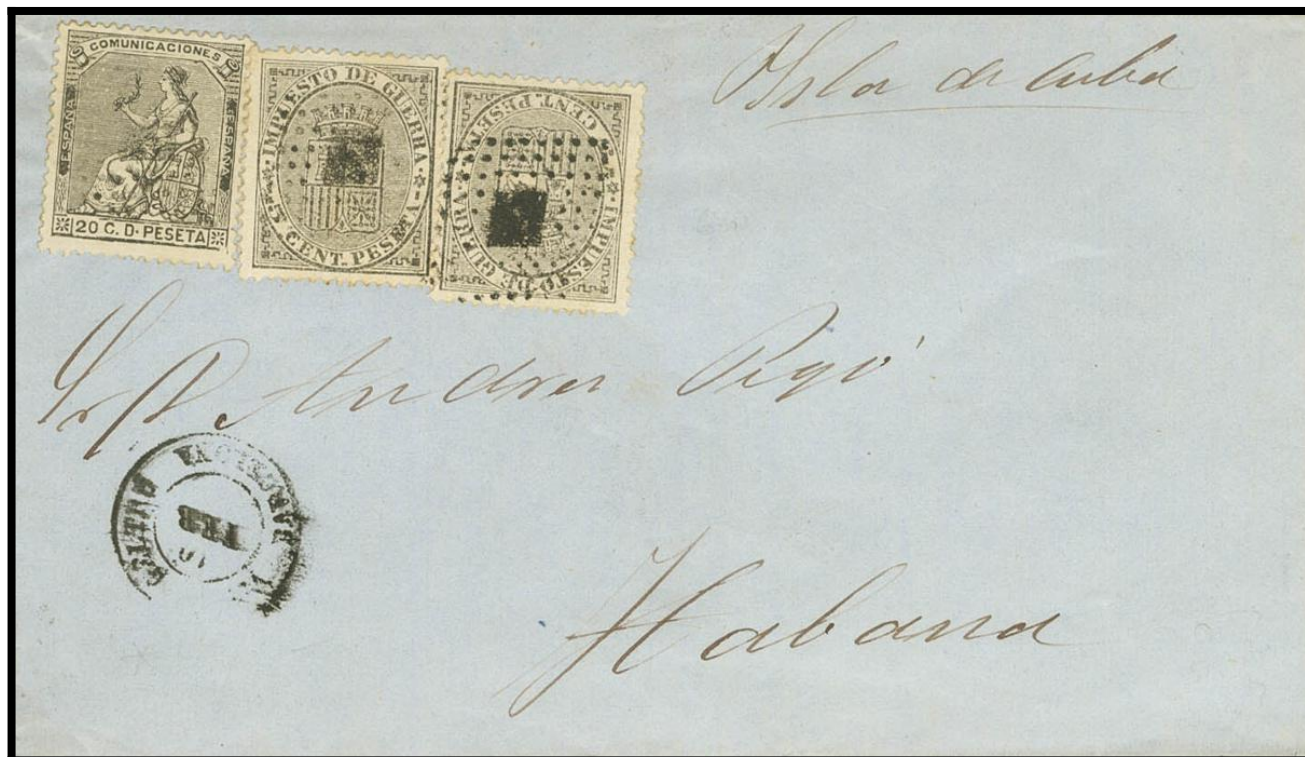 COMUNICACIONES
ESPAÑA ESPAÑA
20 C. D. PESETA
IMPUESTO DE GUERRA
5 CENT. PESETA
IMPUESTO DE GUERRA
5 CENT. PESETA
Isla de Cuba
Sr D. Andres
Habana
FEB